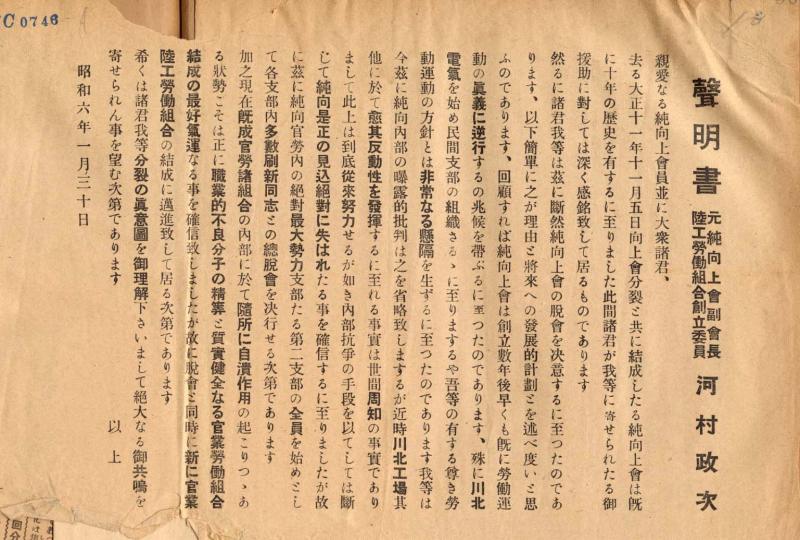 C0746
聲明書
元純向上會副會長
陸工勞働組合創立委員
河村政次
親愛なる純向上會員並に大衆諸君、
去る大正十一年十一月五日向上會分裂と共に結成したる純向上會は旣
に十年の歷史を有するに至りました此間諸君が我等に寄せられたる御
援助に對しては深く感銘致して居るものであります
然るに諸君我等は玆に斷然純向上會の脫會を決意するに至つたのであ
ります、以下簡單に之が理由と將來への發展的計劃とを述べ度いと思
ふのであります、回顧すれば純向上會は創立數年後早くも旣に勞働運
動の眞義に逆行するの兆候を帶ぶるに至つたのであります、殊に川北
電氣を始め民間支部の組織さるゝに至りまするや吾等の有する尊き勞
働運動の方針とは非常なる懸隔を生ずるに至つたのであります我等は
今玆に純向內部の曝露的批判は之を省略致しまするが近時川北工場其
他に於て愈其反動性を發揮するに至れる事實は世間周知の事實であり
まして此上は到底從來努力せるが如き內部抗爭の手段を以てしては斷
じて純向是正の見込絕對に失はれたる事を確信するに至りましたが故
に玆に純向官勞內の絕對最大勢力支部たる第二支部の全員を始めとし
て各支部內多數刷新同志との總脫會を決行せる次第であります
加之現在旣成官勞諸組合の內部に於て隨所に自潰作用の起こりつゝあ
る狀勢こそは正に職業的不良分子の精算と質實健全なる官業勞働組合
結成の最好氣運なる事を確信致しましたが故に脫會と同時に新に官業
陸工勞働組合の結成に邁進致して居る次第であります
希くは諸君我等分裂の眞意圖を御理解下さいまして絕大なる御共鳴を
寄せられん事を望む次第であります
以上
昭和六年一月三十日